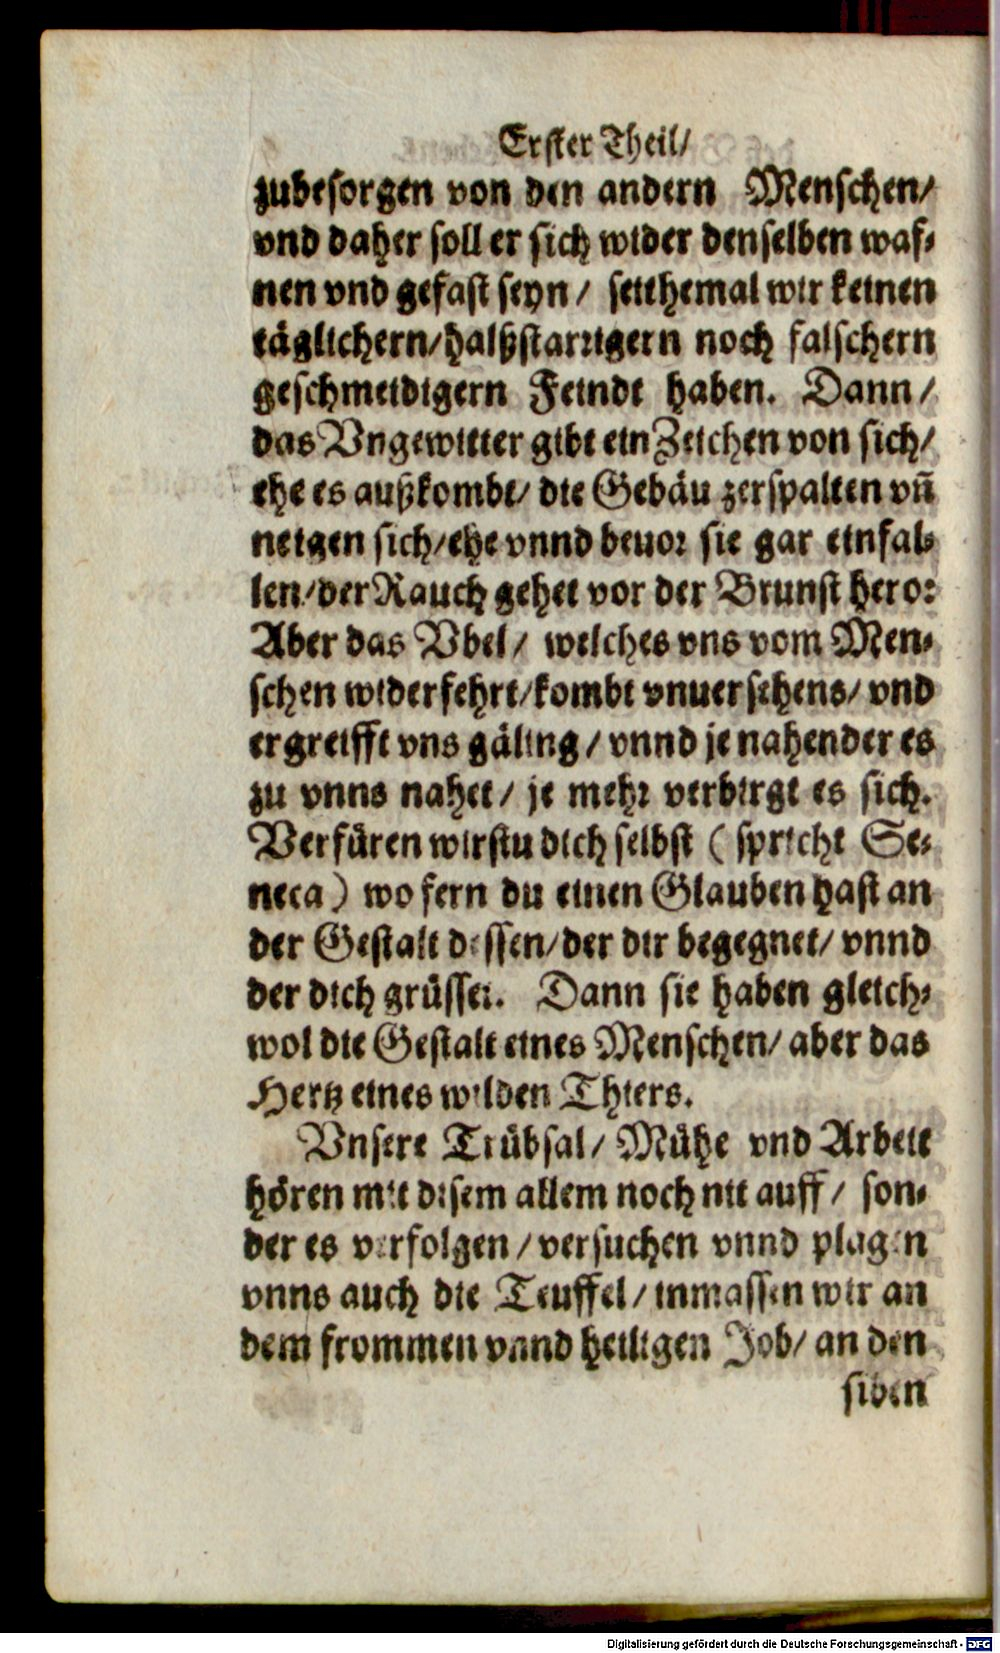 Erster Theil/
zubesorgen von den andern Menschen/
vnd daher soll er sich wider denselben waf-
nen vnd gefast seyn/ seithemal wir keinen
täglichern/halßstarrigern noch falschern
geschmeidigern Feindt haben. Dann/
das Vngewitter gibt ein Zeichen von sich/
ehe es außkombt/ die Gebäu zerspalten vñ
neigen sich/ehe vnnd beuor sie gar einfal-
len/der Rauch gehet vor der Brunst heror
Aber das Vbel/ welches vns vom Men-
schen widerfehrt/kombt vnuersehens/ vnd
ergreifft vns gäling/ vnnd je nahender es
zu vnns nahet/ je mehr verbirgt es sich.
Verfüren wirstu dich selbst (spricht Se-
neca) wo fern du einen Glauben hast an
der Gestalt dessen/der dir begegnet/ vnnd
der dich grüsset. Dann sie haben gleich-
wol die Gestalt eines Menschen/ aber das
Hertz eines wilden Thiers.
Vnsere Trübsal/ Mühe vnd Arbeit
hören mit disem allem noch nit auff/ son-
der es verfolgen/versuchen vnnd plagen
vnns auch die Teuffel/ inmassen wir an
dem frommen vnnd heiligen Job/ an den
siben
Digitalisierung gefördert durch die Deutsche Forschungsgemeinschaft - DFG